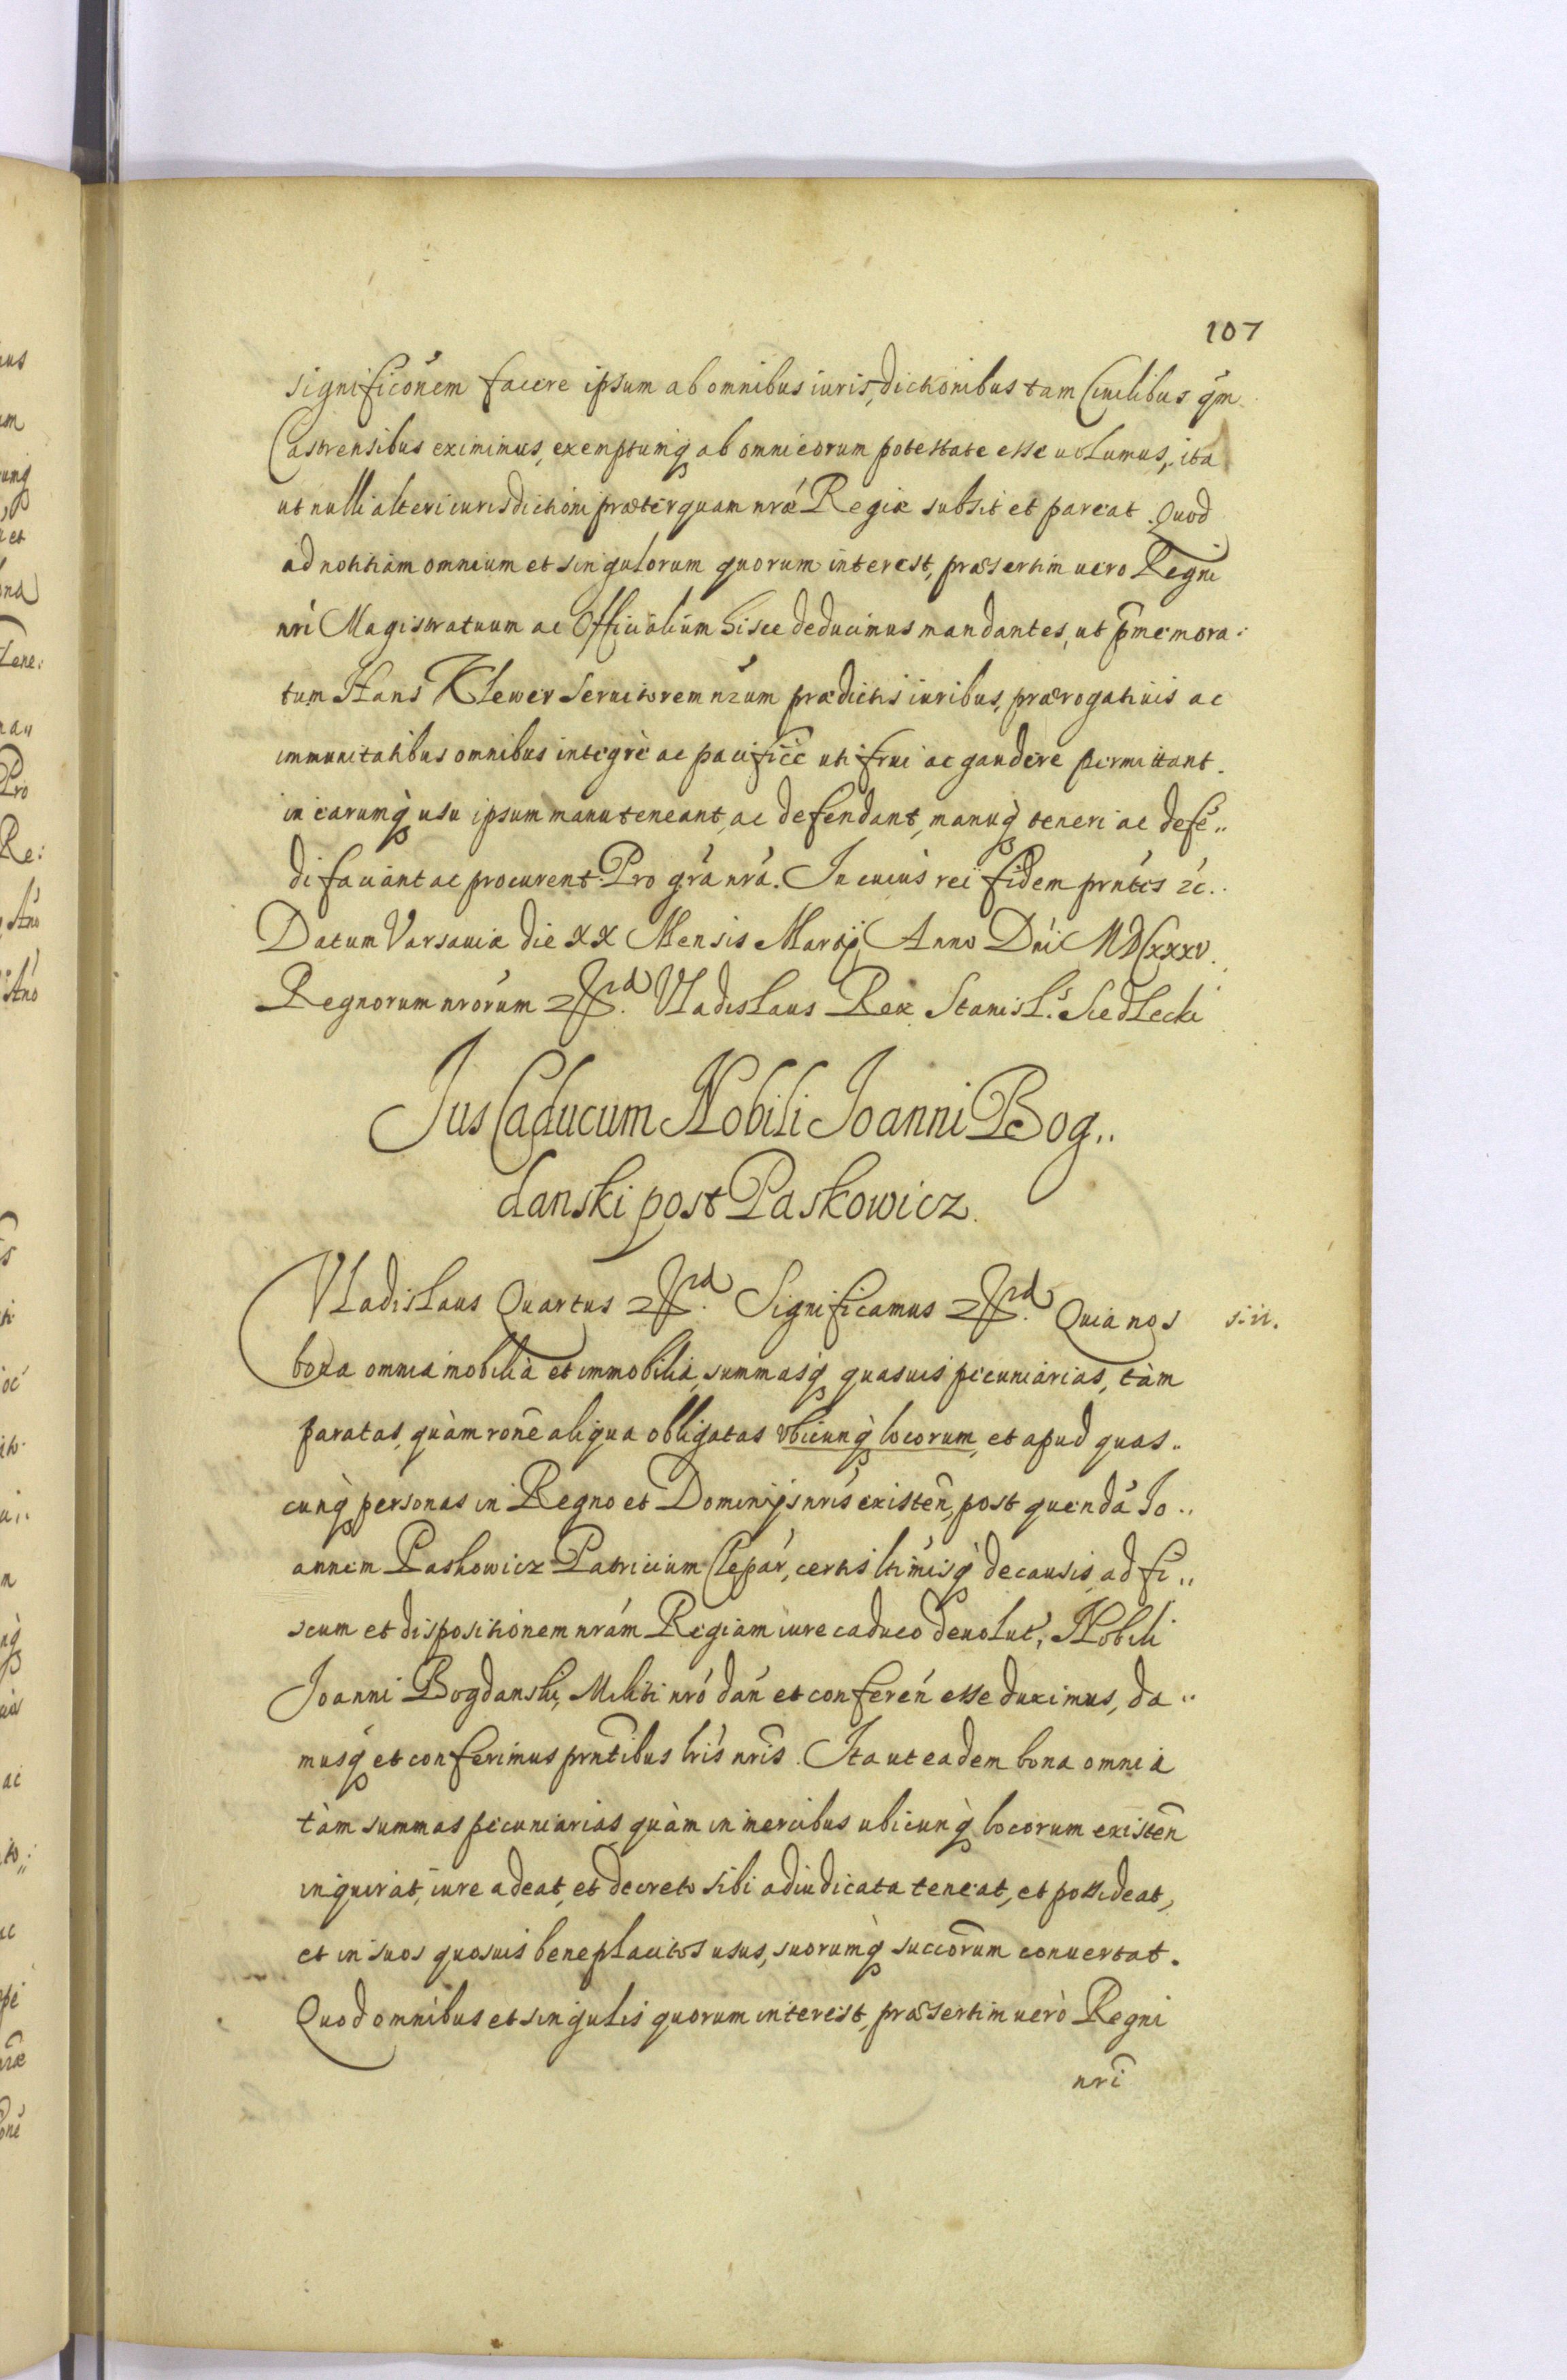 107
significónem facere ipsum ab omnibus iuris,dictionibus tam Ciuilibus qm̃
Castrensibus eximimus, exemptumq; ab omni eorum potestate esse uolumus, ita
ut nulli alteri iurisdictioni præterquam nræ Regiæ subsit et pareat. Quod
ad notitiam omnium et singulorum quorum interest, præsertim uero Regni
nri Magistratuum ac Officialium hisce deducimus mandantes, ut p̃memora:
tum Hans Klewer Seruitorem nrum prædictis iuribus, prærogatiuis ac
immunitatibus omnibus integrè ac pacificè uti frui ac gaudere permittant.
in earumq; usu ipsum manuteneant, ac defendant, manuq; teneri ac defē„
di faciant ac procurent Pro grá nrá. In cuius rei fidem prntes &c.
Datum Varsauiæ die XX Mensis Martij Anno Dni MDCXXXV.
Regnorum nrorum &. Vladislaus Rex Stanisl.s Siedlecki
Jus Caducum Nobili Joanni Bog„
danski post Paskowicz.
Vladislaus Quartus &. Significamus &. Quia nos
bona omnia mobilia et immobilia, summasq; quasuis pecuniarias, tàm
paratas, quàm rone aliqua obligatas vbicunq; locorum, et apud quas„
cunq; personas in Regno et Dominijs nris existen̄, post quendā Jo„
annem Paskowicz Patricium Clepar, certis ltimisq; de causis, ad fi„
scum et dispositionem nrám Regiam iure caduco deuolut, Nobili
Joanni Bogdanski, Militi nró dan̄ et conferen̄ esse duximus, da„
musq; et conferimus prntibus lris nris. Ita ut eadem bona omnia
tàm summas pecuniarias quàm in mercibus ubicunq; locorum existen̄
inquirat, iure adeat, et decreto sibi adiudicata teneat, et possideat,
et in suos quosuis beneplacitos usus, suorumq; succõrum conuertat.
Quod omnibus et singulis quorum interest, præsertim uerò Regni
nri